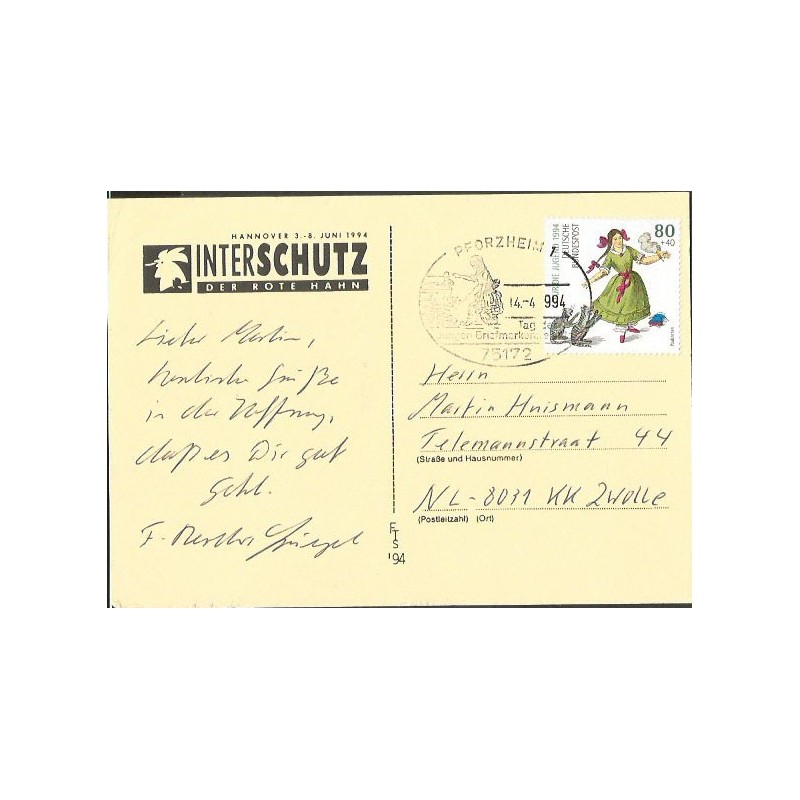 HANNOVER 3.-8. JUNI 1994
INTERSCHUTZ
DER ROTE HAHN
Lieber Martin,
herzliche Grüße
in der Hoffnung,
daß es Dir gut
geht.
F.
FTS
'94
PFORZHEIM 1
14.-4 994
Tag der
jungen Briefmarkenfreunde
75172
FÜR DIE JUGEND 1994
DEUTSCHE
BUNDESPOST
80
+40
Paulinchen
Herrn
Martin Huismann
Telemannstraat 44
(Straße und Hausnummer)
NL-8031 KK Zwolle
(Postleitzahl) (Ort)